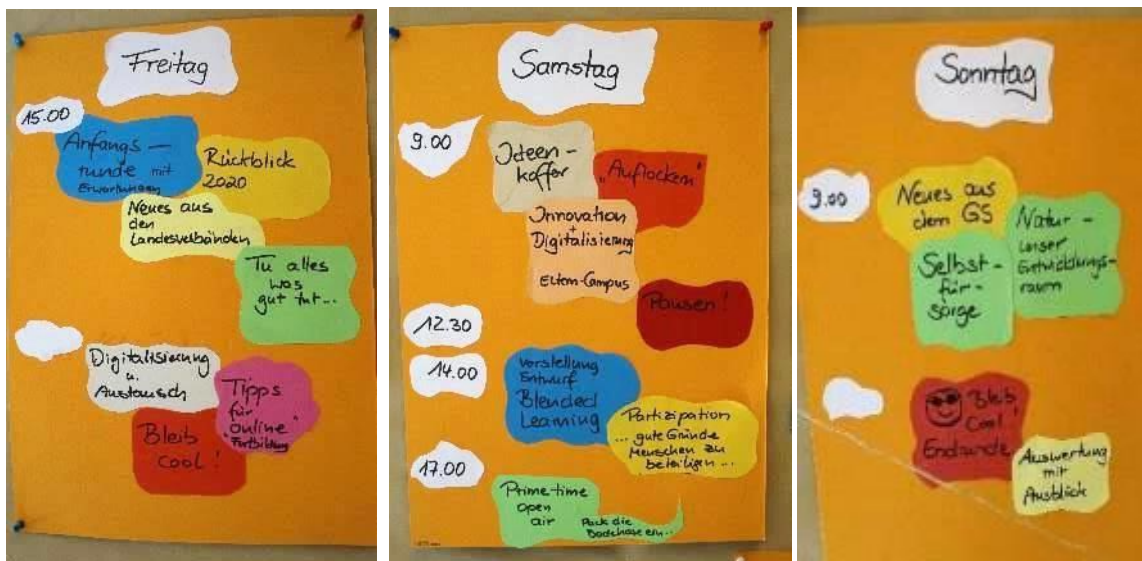 Freitag
15.00
Anfangs-
runde mit
Erwartungen
Rückblick
2020
Neues aus
den
Landesverbänden
Tu alles
was
gut tut...
Digitalisierung
u.
Austausch
Tipps
für
"Online"
Fortbildung
Bleib
cool!
Samstag
9.00
Ideen-
koffer
„Auflockern"
Innovation
+
Digitalisierung
Eltern-Campus
Pausen!
12.30
14.00
Vorstellung
Entwurf
Blended
Learning
Partizipation
... gute Gründe
Menschen zu
beteiligen ...
17.00
Prime-time
open
air
Pack die
Badehose ein...
Sonntag
9.00
Neues aus
dem GS
Natur-
unser
Entwicklungs-
raum
Selbst-
für-
sorge
Bleib
Cool!
Endrunde
Auswertung
mit
Ausblick